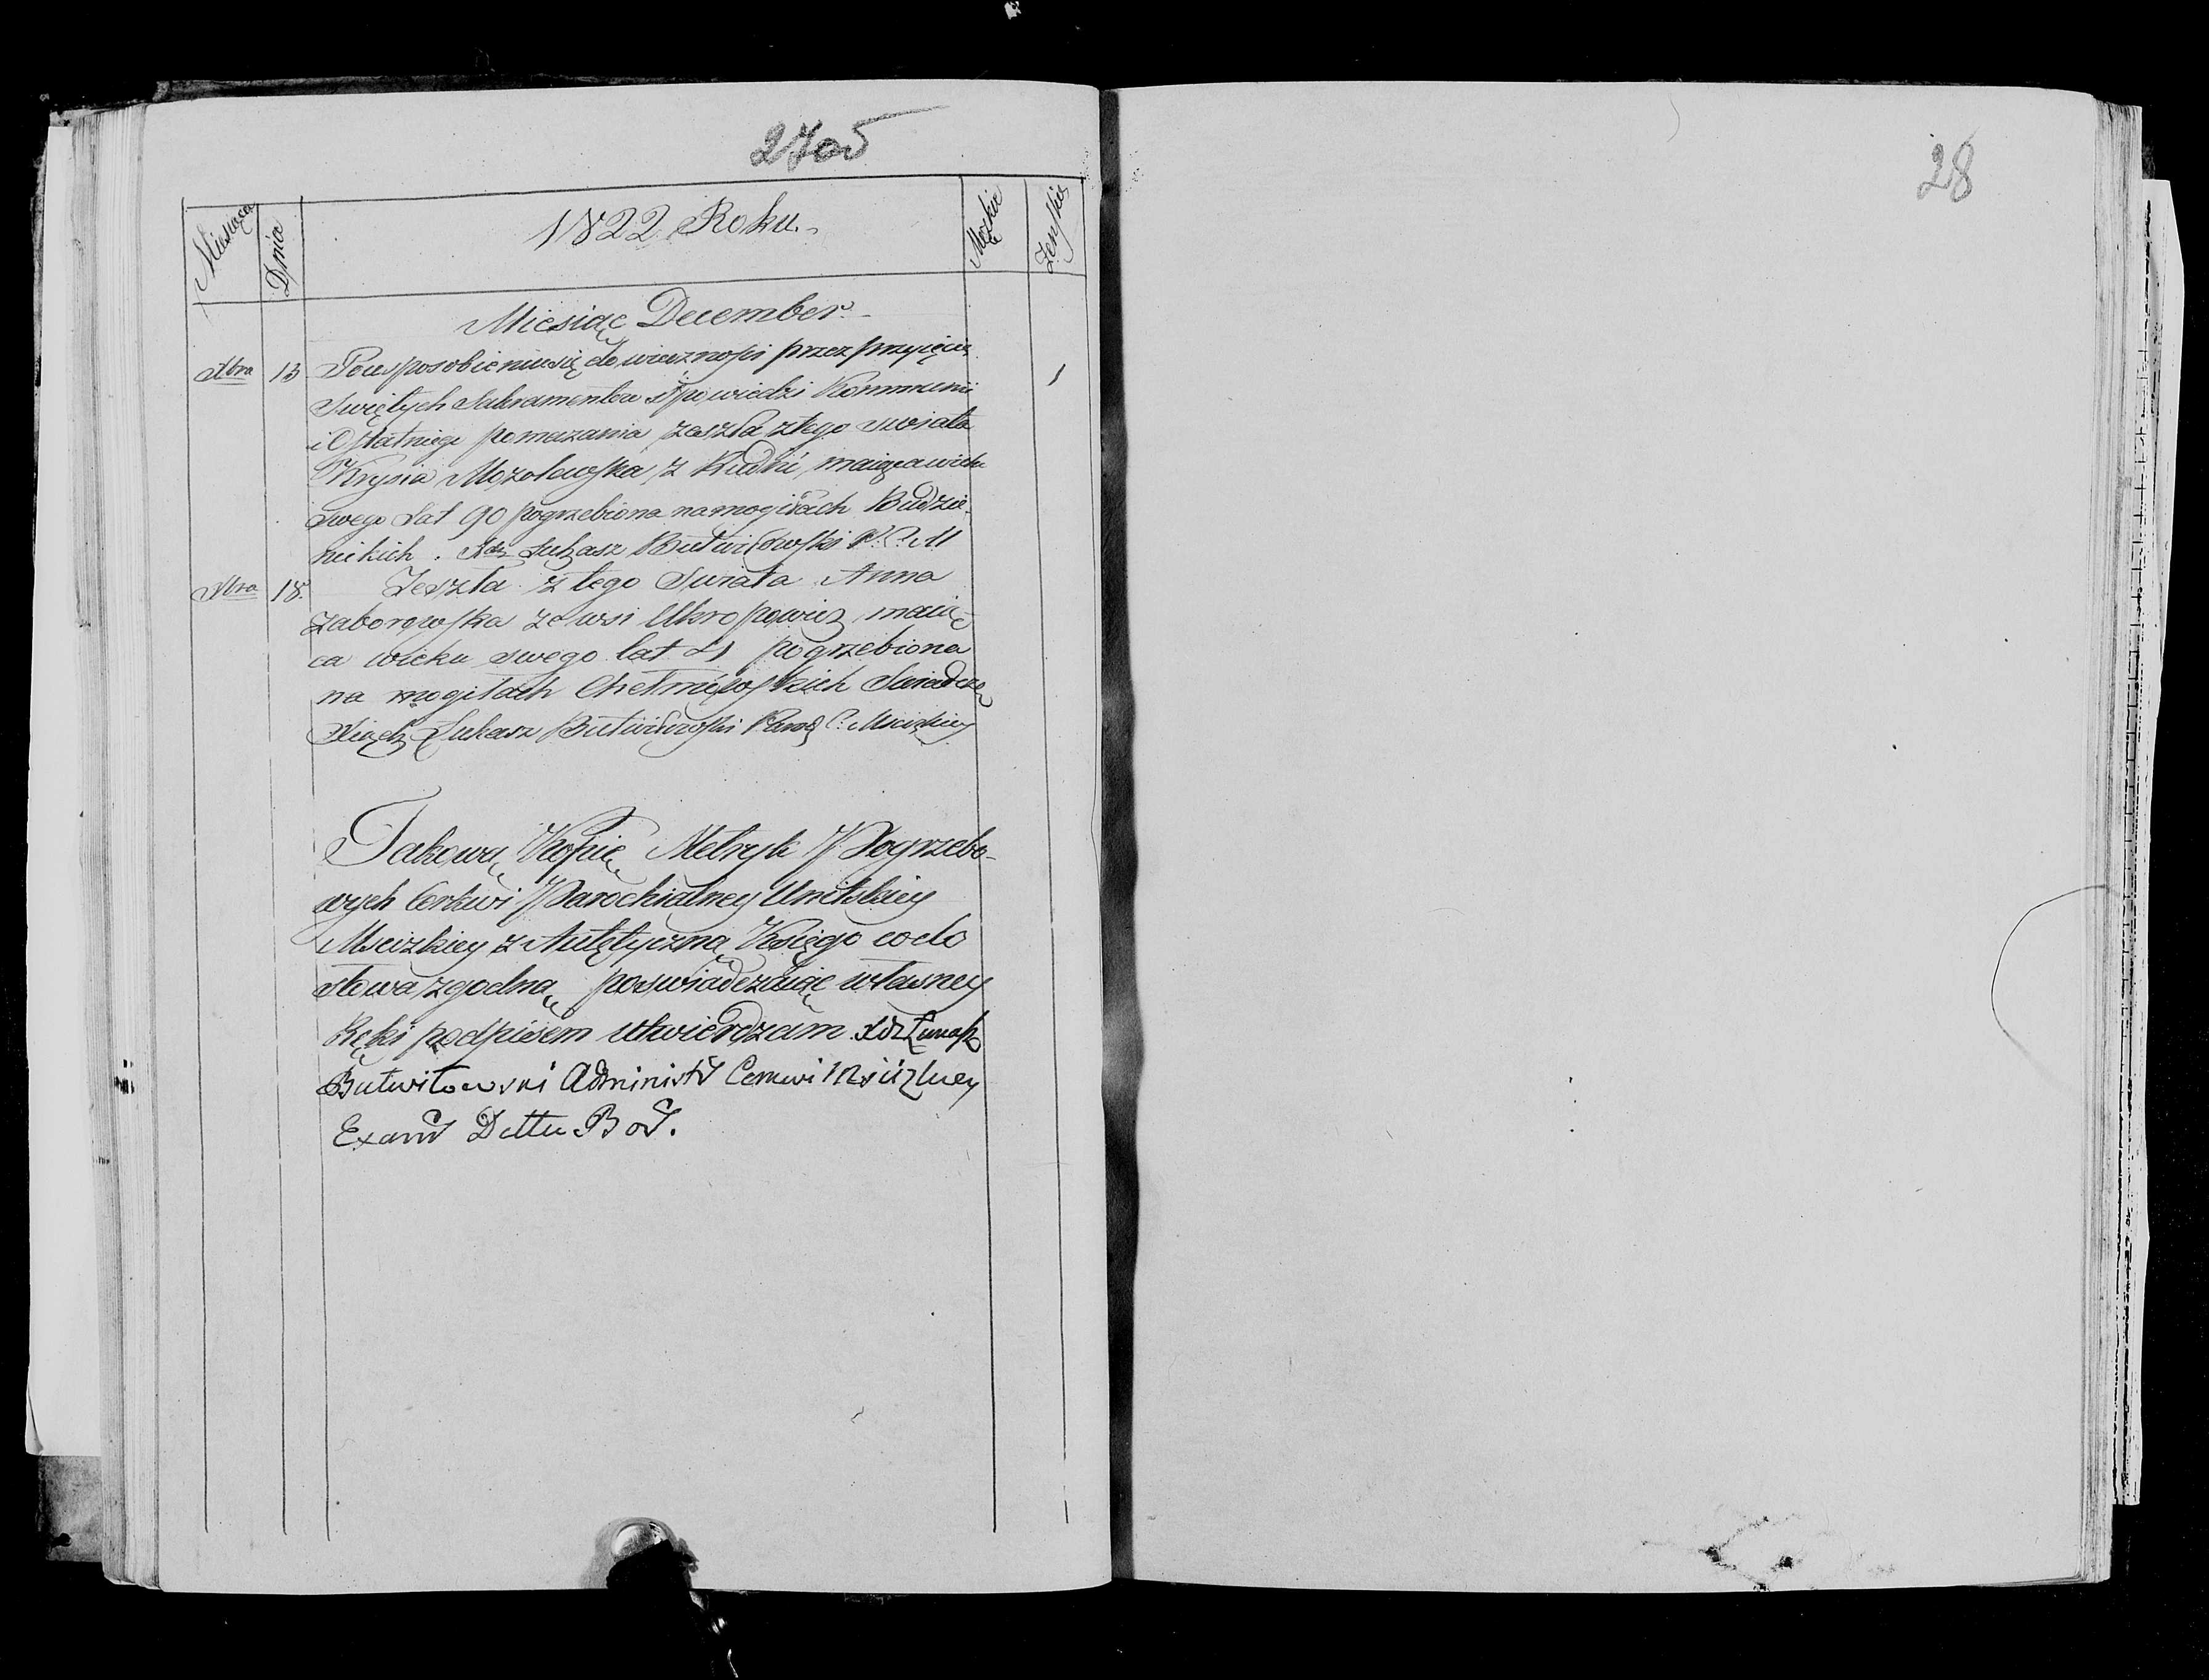 27об
28
Miesiąca Dnia 1822 Roku. Męzkie Zeńskie
Miesiąc December
Xbra 13 Po usposobieniu się do wiecznosci przez przyięcie 1
Swiętych Sakramentow Spowiedzi Kommunii
i Ostatniego pomazania zeszla z tego swiata
Krysia Mozolewska z Rudni maiąca wieku
swego Lat 90 pogrzebiona na mogiłach Budzie-
nickich. Xdz Łukasz Butwiłowski P. C. M
Xbra 18. Zeszła z tego Swiata Anna
Zaborowska ze wsi Ukropowicz maią-
ca wieku swego lat 21 pogrzebiona
na mogiłach Chełmiewskich Swiadczę
Xiądz Łukasz Butwiłowski C. Mscizkiey
Takową Kopię Metryk Pogrzebo-
wych Cerkwi Parochialney Unitskiey
Mscizkiey z Autętyczną Księgo co do
słowa zgodną poswiadczaiąc własney
Ręki podpisem utwierdzam Xdz Łukasz
Butwiłowski Administr Cerkwi Mscizkiey
Exam Dettu Bor.